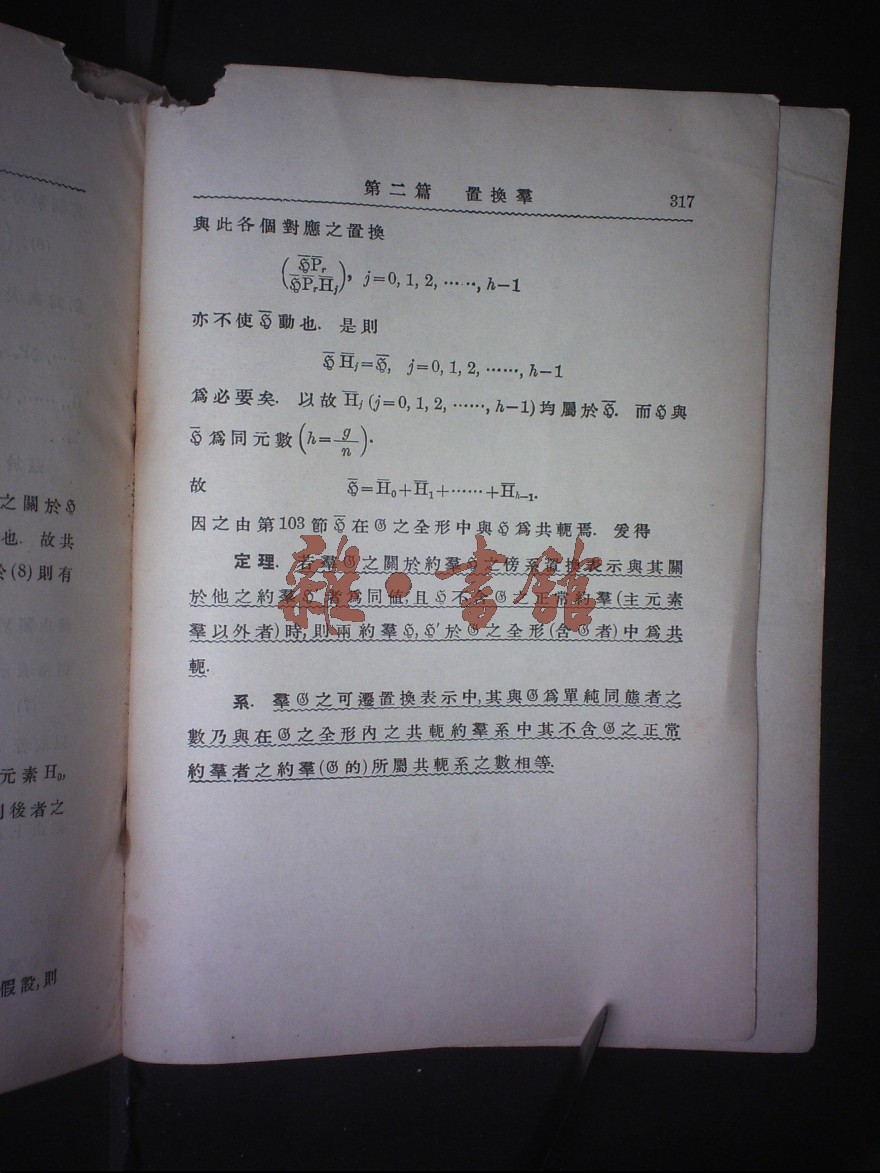 第二篇 置換羣 317
與此各個對應之置換
(𝔥̅P̅ᵣ / 𝔥̅P̅ᵣH̅ⱼ), j=0, 1, 2, ……, h−1
亦不使𝔥̅動也. 是則
𝔥̅ H̅ⱼ=𝔥̅, j=0, 1, 2, ……, h−1
爲必要矣. 以故H̅ⱼ (j=0, 1, 2, ……, h−1)均屬於𝔥̅. 而𝔥與
𝔥̅爲同元數(h=g/n).
故 𝔥̅=H̅₀+H̅₁+……+H̅ₕ₋₁.
因之由第103節𝔥̅在𝔊之全形中與𝔥爲共軛焉. 爰得
定理. 若羣𝔊之關於約羣𝔥之傍系置換表示與其關
於他之約羣𝔥′者爲同値,且𝔥不含𝔊之正常約羣(主元素
羣以外者)時,則兩約羣𝔥,𝔥′於𝔊之全形(含𝔊者)中爲共
軛.
系. 羣𝔊之可遷置換表示中,其與𝔊爲單純同態者之
數乃與在𝔊之全形內之共軛約羣系中其不含𝔊之正常
約羣者之約羣(𝔊的)所屬共軛系之數相等.
之關於𝔥
也. 故共
於(8)則有
元素H₀,
則後者之
假設,則
雜·書館